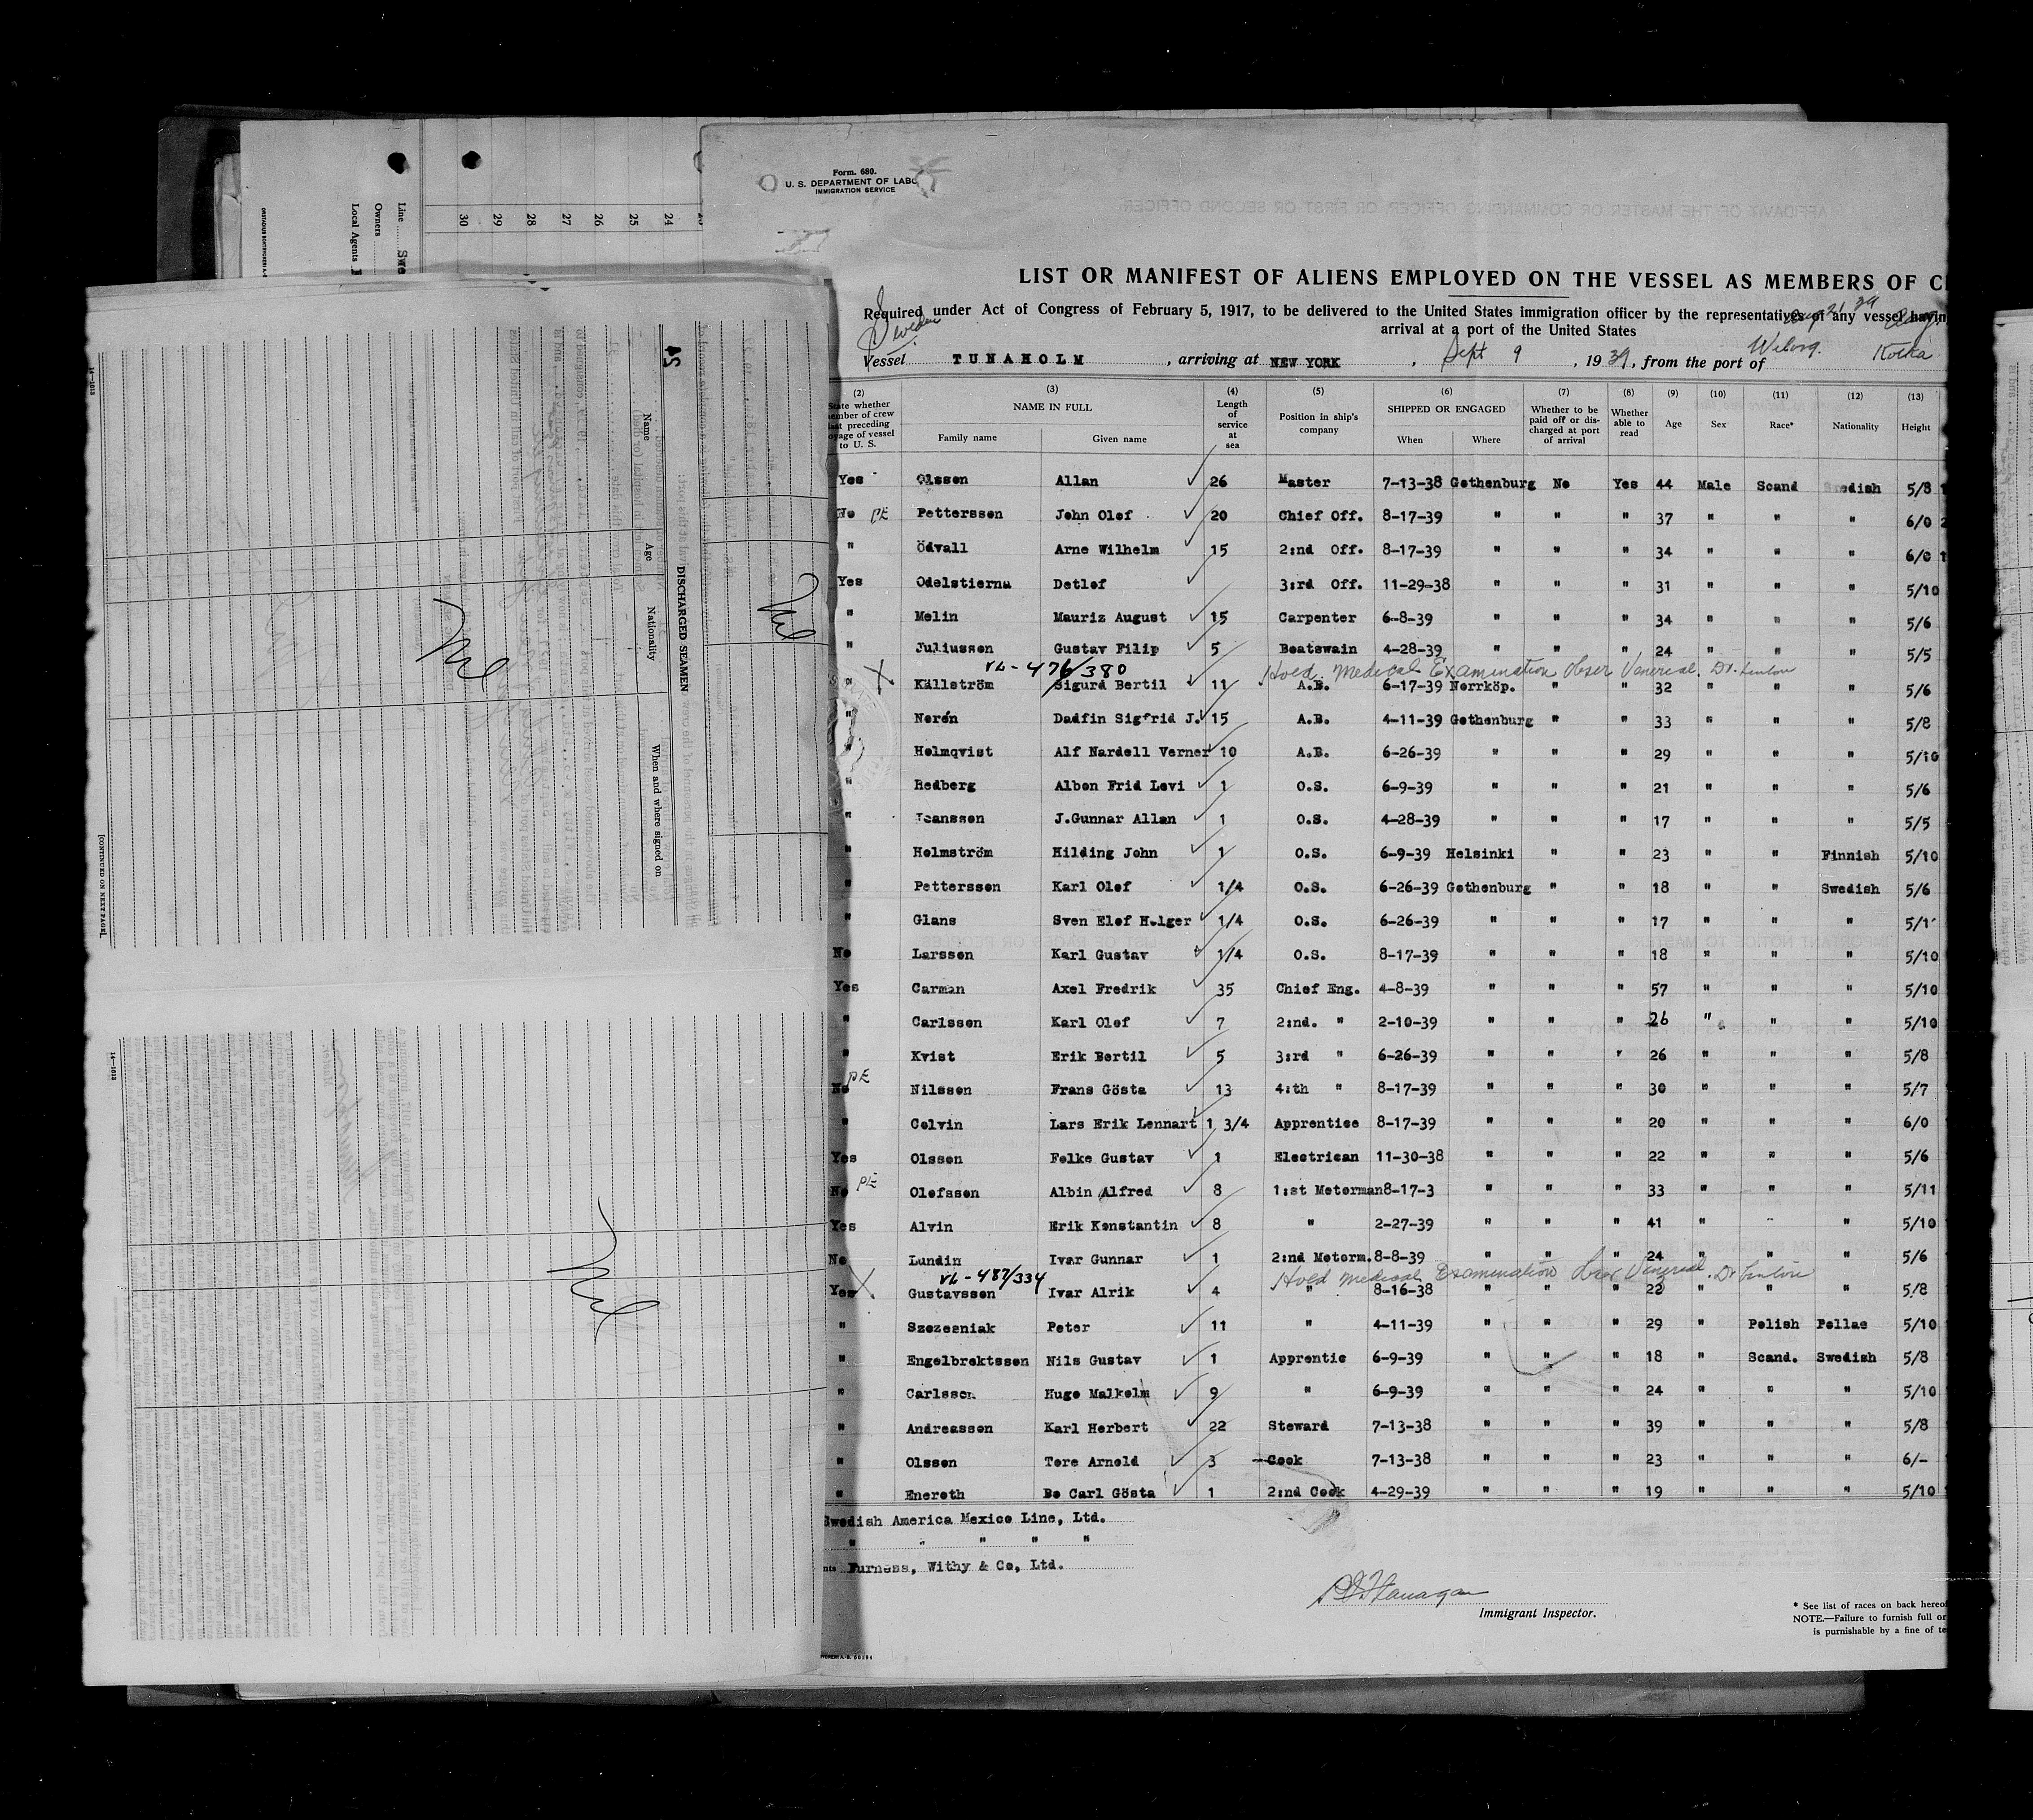 Form. 680.
U. S. DEPARTMENT OF LABO
IMMIGRATION SERVICE
LIST OR MANIFEST OF ALIENS EMPLOYED ON THE VESSEL AS MEMBERS OF C
Required under Act of Congress of February 5, 1917, to be delivered to the United States immigration officer by the representatives of any vessel having
arrival at a port of the United States
Sweden
Vessel TUNAHOLM , arriving at NEW YORK , Sept 9 , 1939, from the port of Wiborg. Kotka
(2) (3) (4) (5) (6) (7) (8) (9) (10) (11) (12) (13)
State whether member of crew last preceding voyage of vessel to U. S. NAME IN FULL Family name Given name Length of service at sea Position in ship's company SHIPPED OR ENGAGED When Where Whether to be paid off or discharged at port of arrival Whether able to read Age Sex Race* Nationality Height
Yes Olsson Allan 26 Master 7-13-38 Gothenburg No Yes 44 Male Scand Swedish 5/8
No PE Pettersson John Olof 20 Chief Off. 8-17-39 " " " 37 " " " 6/0
" Ödvall Arne Wilhelm 15 2:nd Off. 8-17-39 " " " 34 " " " 6/0
Yes Odelstierna Detlof 3:rd Off. 11-29-38 " " " 31 " " " 5/10
" Melin Mauriz August 15 Carpenter 6-8-39 " " " 34 " " " 5/6
" Juliusson Gustav Filip 5 Boatswain 4-28-39 " " " 24 " " " 5/5
VL-476/380 Hold Medical Examination Obser Venereal. Dr.
" Källström Sigurd Bertil 11 A.B. 6-17-39 Norrköp. " " 32 " " " 5/6
" Norén Dadfin Sigfrid J. 15 A.B. 4-11-39 Gothenburg " " 33 " " " 5/8
" Holmqvist Alf Nardell Verner 10 A.B. 6-26-39 " " " 29 " " " 5/10
" Hedberg Albon Frid Levi 1 O.S. 6-9-39 " " " 21 " " " 5/6
" Joansson J.Gunnar Allan 1 O.S. 4-28-39 " " " 17 " " " 5/5
" Holmström Hilding John 1 O.S. 6-9-39 Helsinki " " 23 " " Finnish 5/10
" Pettersson Karl Olof 1/4 O.S. 6-26-39 Gothenburg " " 18 " " Swedish 5/6
" Glans Sven Elof Holger 1/4 O.S. 6-26-39 " " " 17 " " " 5/1
No Larsson Karl Gustav 1/4 O.S. 8-17-39 " " " 18 " " " 5/10
Yes Carman Axel Fredrik 35 Chief Eng. 4-8-39 " " " 57 " " " 5/10
" Carlsson Karl Olof 7 2:nd. " 2-10-39 " " " 26 " " " 5/10
" Kvist Erik Bertil 5 3:rd " 6-26-39 " " " 26 " " " 5/8
No PE Nilsson Frans Gösta 13 4:th " 8-17-39 " " " 30 " " " 5/7
" Colvin Lars Erik Lennart 1 3/4 Apprentice 8-17-39 " " " 20 " " " 6/0
Yes Olsson Folke Gustav 1 Electrican 11-30-38 " " " 22 " " " 5/6
No PE Olofsson Albin Alfred 8 1:st Motorman 8-17-3 " " " 33 " " " 5/11
Yes Alvin Erik Konstantin 8 " 2-27-39 " " " 41 " " " 5/10
No Lundin Ivar Gunnar 1 2:nd Motorm. 8-8-39 " " " 24 " " " 5/6
VL-487/334 Hold Medical Examination Obser Venereal. Dr
Yes Gustavsson Ivar Alrik 4 " 8-16-38 " " " 22 " " " 5/8
" Szczesniak Peter 11 " 4-11-39 " " " 29 " Polish Pollae 5/10
" Engelbrektsson Nils Gustav 1 Apprentic 6-9-39 " " " 18 " Scand. Swedish 5/8
" Carlsson Hugo Malkolm 9 " 6-9-39 " " " 24 " " " 5/10
" Andreasson Karl Herbert 22 Steward 7-13-38 " " " 39 " " " 5/8
" Olsson Tore Arnold 3 Cook 7-13-38 " " " 23 " " " 6/-
" Eneroth Bo Carl Gösta 1 2:nd Cook 4-29-39 " " " 19 " " " 5/10
Swedish America Mexico Line, Ltd.
" " " " "
Furness, Withy & Co, Ltd.
Flanagan
Immigrant Inspector.
* See list of races on back hereof
NOTE.—Failure to furnish full or
is punishable by a fine of te
Line Swe
Owners
Local Agents
30 29 28 27 26 25 24
42
DISCHARGED SEAMEN
Name Age Nationality When and where signed on
Nil
Nil
Nil
[CONTINUED ON NEXT PAGE]
14—1613